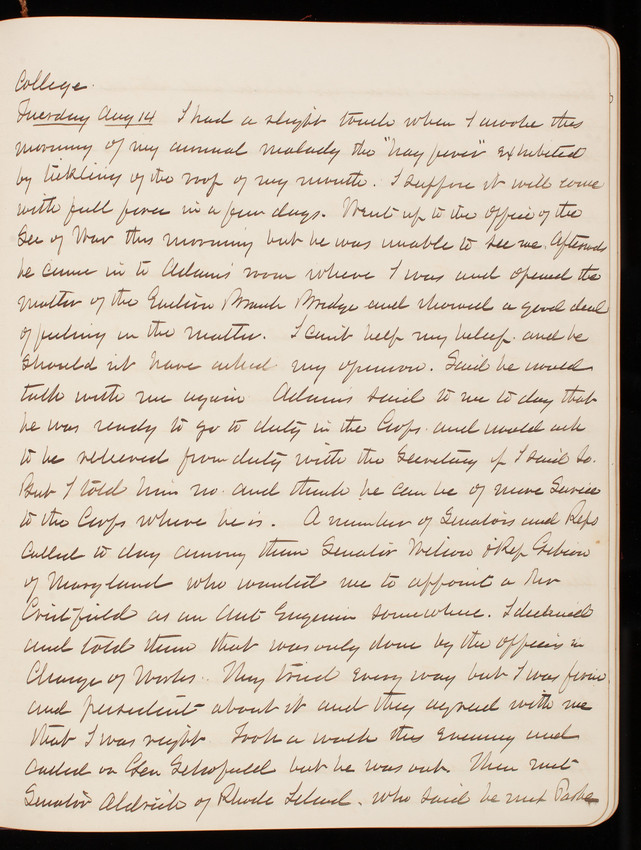 College.
Tuesday Aug 14 I had a slight touch when I awoke this
morning of my annual malady the "hay fever" exhibited
by tickling of the roof of my mouth. I suppose it will come
with full force in a few days. Went up to the office of the
Sec of War this morning but he was unable to see me. Afterwards
he came in to Adams' room where I was and opened the
matter of the Eastern Branch Bridge and showed a good deal
of feeling in the matter. I can't help my belief. and he
should not have asked my opinion. Said he would
talk with me again Adams said to me to day that
he was ready to go to duty in the Corps. and would ask
to be relieved from duty with the Secretary if I said so.
But I told him no. and think he can be of more service
to the Corps where he is. A number of Senators and Reps
called to day among them Senator Wilson & Rep Gibson
of Maryland who wanted me to appoint a Mr
Cristfield as an Asst Engineer somewhere. I declined
and told them that was only done by the officers in
Charge of Works. They tried every way but I was firm
and persistent about it and they agreed with me
that I was right. Took a walk this evening and
called on Gen Schofield but he was out. Then met
Senator Aldrich of Rhode Island. who said he met